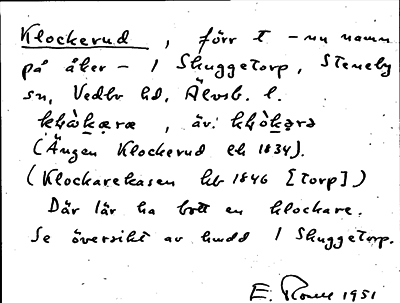 Klockerud, förr t - nu namn
på åker - / Skuggetorp, Steneby
sn, Vedbo hd, Älvsb. l.
khòkæræ, äv. khòkərə
(Ängen Klockerud ek 1834).
(Klockarekasen hb 1846 [torp])
Där lär ha bott en klockare.
Se översikt av hudd / Skuggetorp.
E. 1951